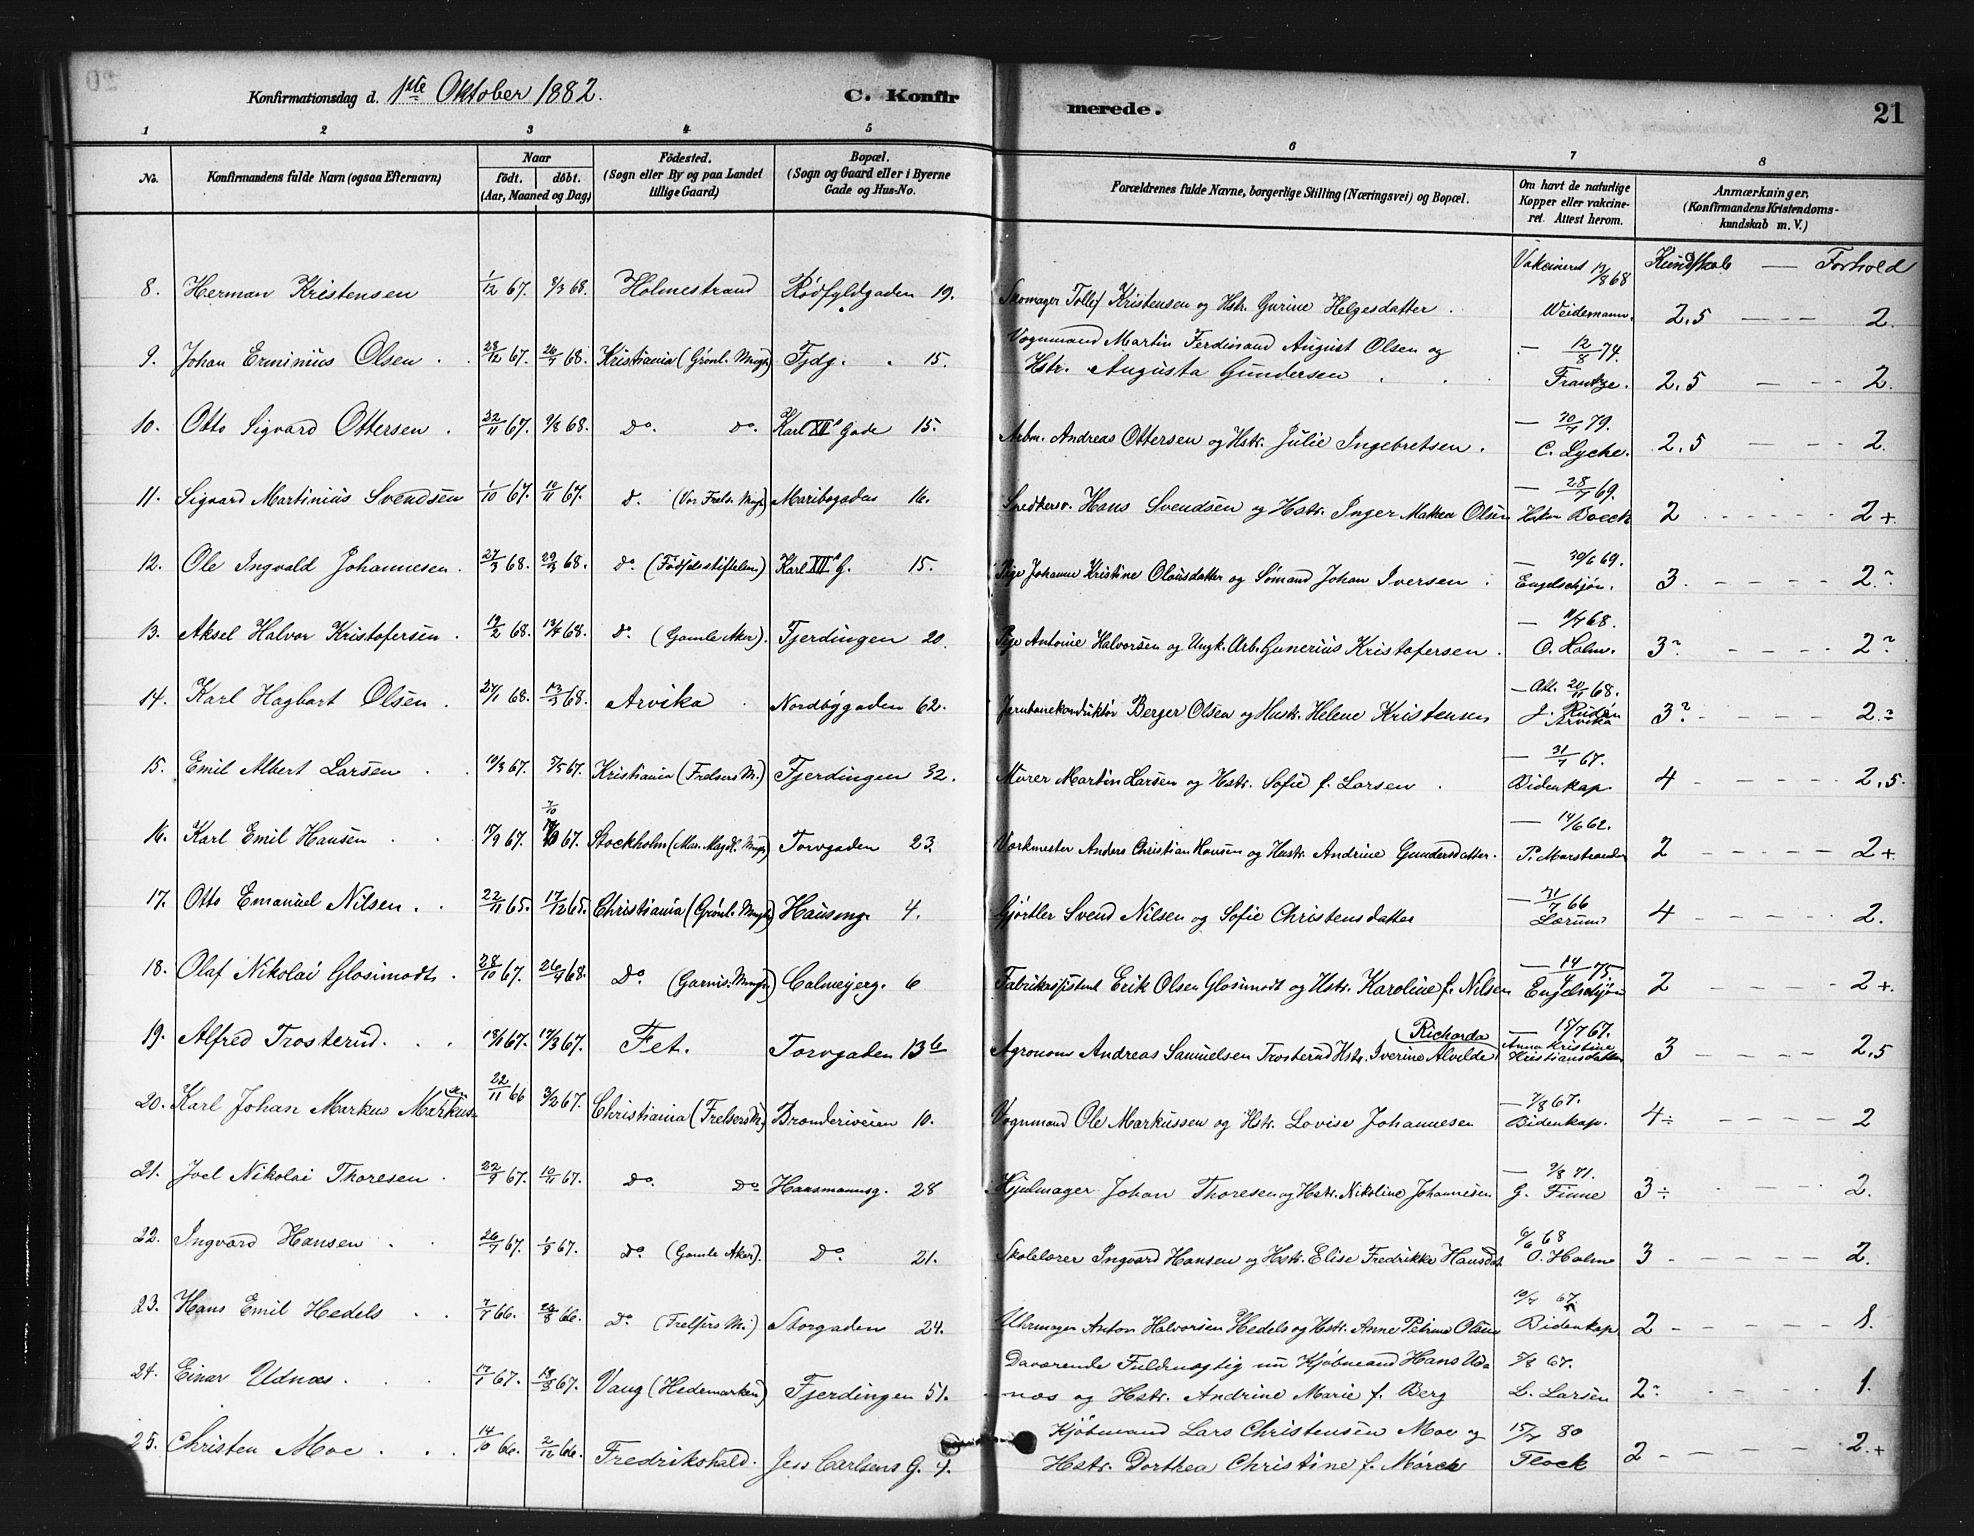 Konfirmationsdag d. 1ste Oktober 1882. C. Konfirmerede. 21
1 2 3 4 5 6 7 8
No. Konfirmandens fulde Navn (ogsaa Efternavn) Naar födt. döbt. (Aar, Maaned og Dag) Födested. (Sogn eller By og paa Landet tillige Gaard) Bopæl. (Sogn og Gaard eller i Byerne Gade og Hus-No. Forældrenes fulde Navne, borgerlige Stilling (Næringsvei) og Bopæl. Om havt de naturlige Kopper eller vakcineret. Attest herom. Anmærkninger. (Konfirmandens Kristendomskundskab m. V.)
Kundskab — Forhold
8. Herman Kristensen 1/12 67. 8/3 68. Holmestrand Rödfyldgaden 19. Skomager Tollef Kristensen og Hstr. Gurine Helgesdatter. Vakcineret 12/8 68 Weidemann. 2,5 — 2.
9. Johan Erminius Olsen 28/12 67. 26/4 68. Kristiania (Grönl. Mngh) Fjdg. 15. Vognmand Martin Ferdinand August Olsen og Hstr. Augusta Gundersen — 12/8 74. Frantze. 2,5 — 2.
10. Otto Sigvard Ottersen. 22/11 67. 9/8 68. Do. Do. Karl XII's Gade 15. Arbm. Andreas Ottersen og Hstr. Julie Ingebretsen. — 79. C. Lyche. 2,5 — 2.
11. Sigvard Martinius Svendsen 1/10 67. 10/11 67. Do. (Vor Frels. Mngh) Maribogaden 16. Snedkersv. Hans Svendsen og Hstr. Inger Mathea Olsen — 28/7 69. Boeck 2 — 2+.
12. Ole Ingvald Johannesen. 27/3 68. 29/3 68. Do (Födselsstiftelsen) Karl XII's G. 15. Pige Johanne Kristine Olausdatter og Sömand Johan Iversen. — 30/6 69. Engelschjön. 3. — 2.?
13. Aksel Halvor Kristofersen. 12/2 68. 13/4 68. Do. (Gamle Aker). Fjerdingen 20. Pige Antonie Halvorsen og Ungk. Arb. Gunerius Kristofersen. — 68. O. Holm. 3? — 2?
14. Karl Hagbart Olsen. 27/1 68. 13/3 68. Arvika Nordbygaden 62. Jernbanekonduktör Berger Olsen og Hustr. Helene Kristensen — Att. 20/11 68. J. Rudén Arvika 3? — 2.?
15. Emil Albert Larsen 10/3 67. 5/5 67. Kristiania (Frelsers M.) Fjerdingen 32. Murer Martin Larsen og Hstr. Sofie f. Larsen. — 31/7 67. Bidenkap 4 — 2,5.
16. Karl Emil Hansen 17/9 67. 7/10 67. Stockholm (Mar. Magdl. Mngh) Torvgaden 23. Værkmester Anders Christian Hansen og Hustr. Andrine Gundersdatter. — 14/6 62. P. Marstrander 2 — 2+
17. Otto Emanuel Nilsen. 22/11 65. 17/12 65. Christiania (Grönl. Mngh) Hausmg. 4. Gjörtler Svend Nilsen og Sofie Christensdatter — 31/7 66 Lærum 4 — 2.
18. Olaf Nikolai Glosimodt. 28/10 67. 26/4 68. Do (Garnis. Mngh) Calmeyerg. 6 Fabrikassistent Erik Olsen Glosimodt og Hstr. Karoline f. Nilsen — 14/4 75. Engelschjön 2 — 2+.
19. Alfred Trosterud. 18/1 67. 17/3 67. Fet. Torvgaden 13b Agronom Andreas Samuelsen Trosterud Hstr. Iverine Alvilde (Richarda) — 15/7 67. Anna Kristine Kristiansdatter 3 — 2,5
20. Karl Johan Markus Markussen 22/11 66 3/2 67. Christiania (Frelsers M.) Brænderiveien 10. Vognmand Ole Markussen og Hstr. Lovise Johannesen — 7/8 67. Bidenkap. 4÷ — 2
21. Joel Nikolai Thoresen. 22/9 67. 10/11 67. Do. Do Hausmannsg. 28 Hjulmager Johan Thoresen og Hstr. Nikoline Johannesen — 9/8 71. G. Finne 3÷ — 2.
22. Ingvard Hansen 26/7 67. 1/9 67. Do (Gamle Aker). Do 21. Skolelærer Ingvard Hansen og Hstr. Elise Fredrikke Hansdat. 6/6 68 O. Holm 3 — 2.
23. Hans Emil Hedels 7/7 66. 26/8 66. Do (Frelsers M.) Storgaden 24. Uhrmager Anton Halvorsen Hedels og Hstr. Anne Petrine Olsen 10/7 67. Bidenkap 2 — 1.
24. Einar Udnæs. 17/1 67. 18/8 67. Vang (Hedemarken) Fjerdingen 51. Daværende Fuldmægtig nu Kjöbmand Hans Udnæs og Hstr. Andrine Marie f. Berg 5/8 67. L. Larsen 2? — 1.
25. Christen Moe. 14/10 66. 2/12 66. Fredrikshald. Jess Carlsens G. 4. Kjöbmand Lars Christensen Moe og Hstr. Dorthea Christine f. Mörch 15/7 80 Flock 2 — 2.+